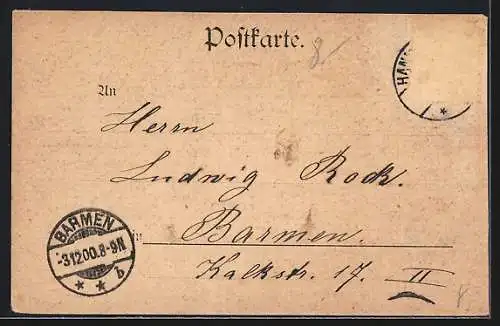 Postkarte.
8/-
An
Herrn
Ludwig Rock.
in Barmen.
Kalkstr. 17. II
HAN
BARMEN
-31200.8-9N
* * b